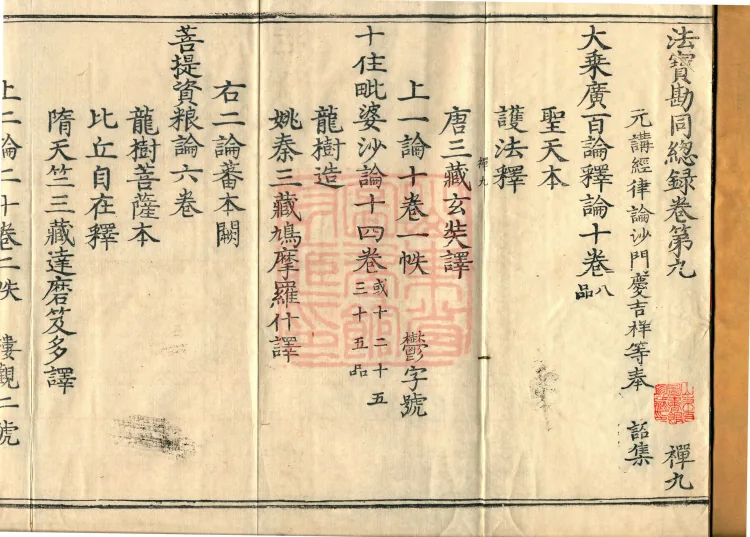 法寶勘同總録卷第九　禪九
元講經律論沙門慶吉祥等奉　詔集
大乘廣百論釋論十卷八品
聖天本
護法釋
禪九
唐三藏玄奘譯
上一論十卷一帙　鬱字號
十住毗婆沙論十四卷或十二十五三十五品
龍樹造
姚秦三藏鳩摩羅什譯
右二論蕃本闕
菩提資粮論六卷
龍樹菩薩本
比丘自在釋
隋天竺三藏達磨笈多譯
上二論二十卷二帙　樓觀二號